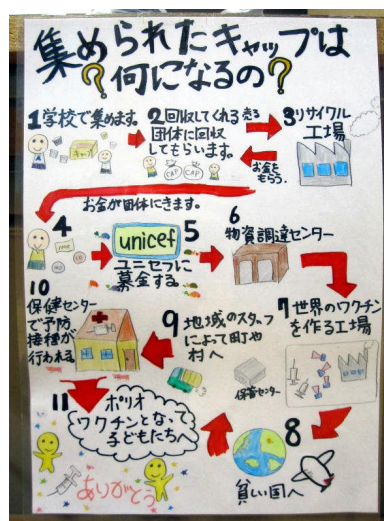 集められたキャップは
?何になるの?
1学校で集めます。
キャップ
2回収してくれる
団体に回収
してもらいます。
CAP
CAP
売る
3リサイクル
工場
お金を
もらう。
お金が団体にきます。
4
unicef
5
ユニセフに
募金する
6
物資調達センター
7世界のワクチン
を作る工場
8
貧しい国へ
保管センター
9
地域のスタッフ
によって町や
村へ
10
保健センター
で予防
接種が
行われる
11
ポリオ
ワクチンとなって
子どもたちへ
ありがとう